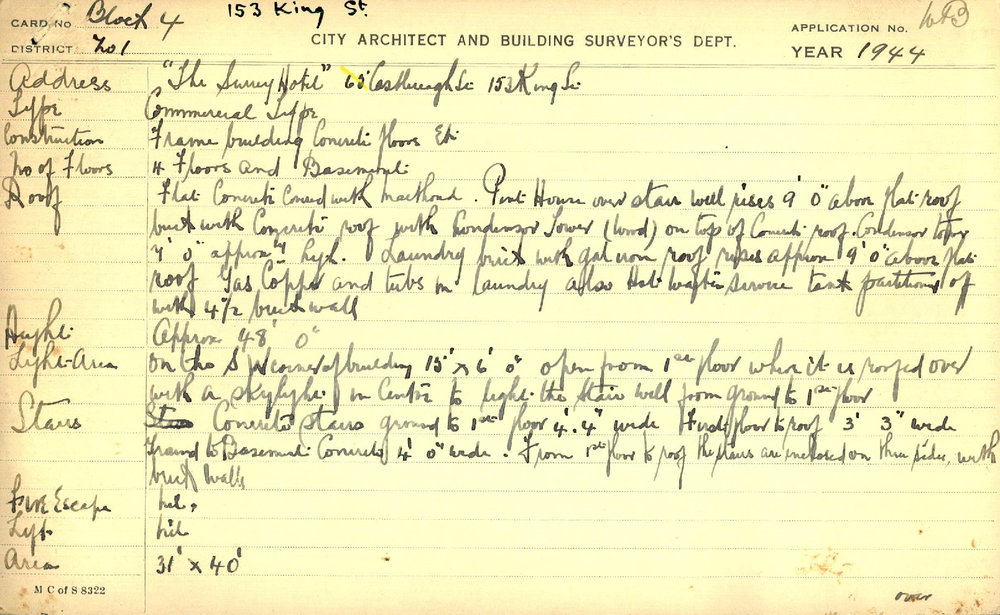 153 King St.
CARD NO Block 4
APPLICATION No. WB
DISTRICT No 1
CITY ARCHITECT AND BUILDING SURVEYOR'S DEPT.
YEAR 1944
Address "The Surrey Hotel" 65 Castlereagh St 153 King St
Type Commercial Type
Construction Frame building Concrete floors Etc
No of Floors 4 Floors and Basement
Roof Flat Concrete Covered with macthoid. Pent House over stair well rises 9' 0" above flat roof
brick with Concrete roof with Condensor Tower (Wood) on top of Concrete roof. Condensor tower
7' 0" approx high. Laundry brick with gal iron roof rises approx 9' 0" above flat
roof Gas Copper and tubs in laundry also Hot water service tank partitioned of
with 4½ brick wall
Height Approx 48' 0"
Light-Area On the S W corner of building 15' x 6' 0" open from 1st floor where it is roofed over
with a skylight in Centre to light the stair well from ground to 1st floor
Stairs Concrete stairs ground to 1st floor 4'.4" wide First floor to roof 3' 3" wide
Ground to Basement Concrete 4' 0" wide. From 1st floor to roof the stairs are inclosed on three sides, with
brick walls
Fire Escape nil.
Lift nil
Area 31' x 40'
M C of S 8322
over